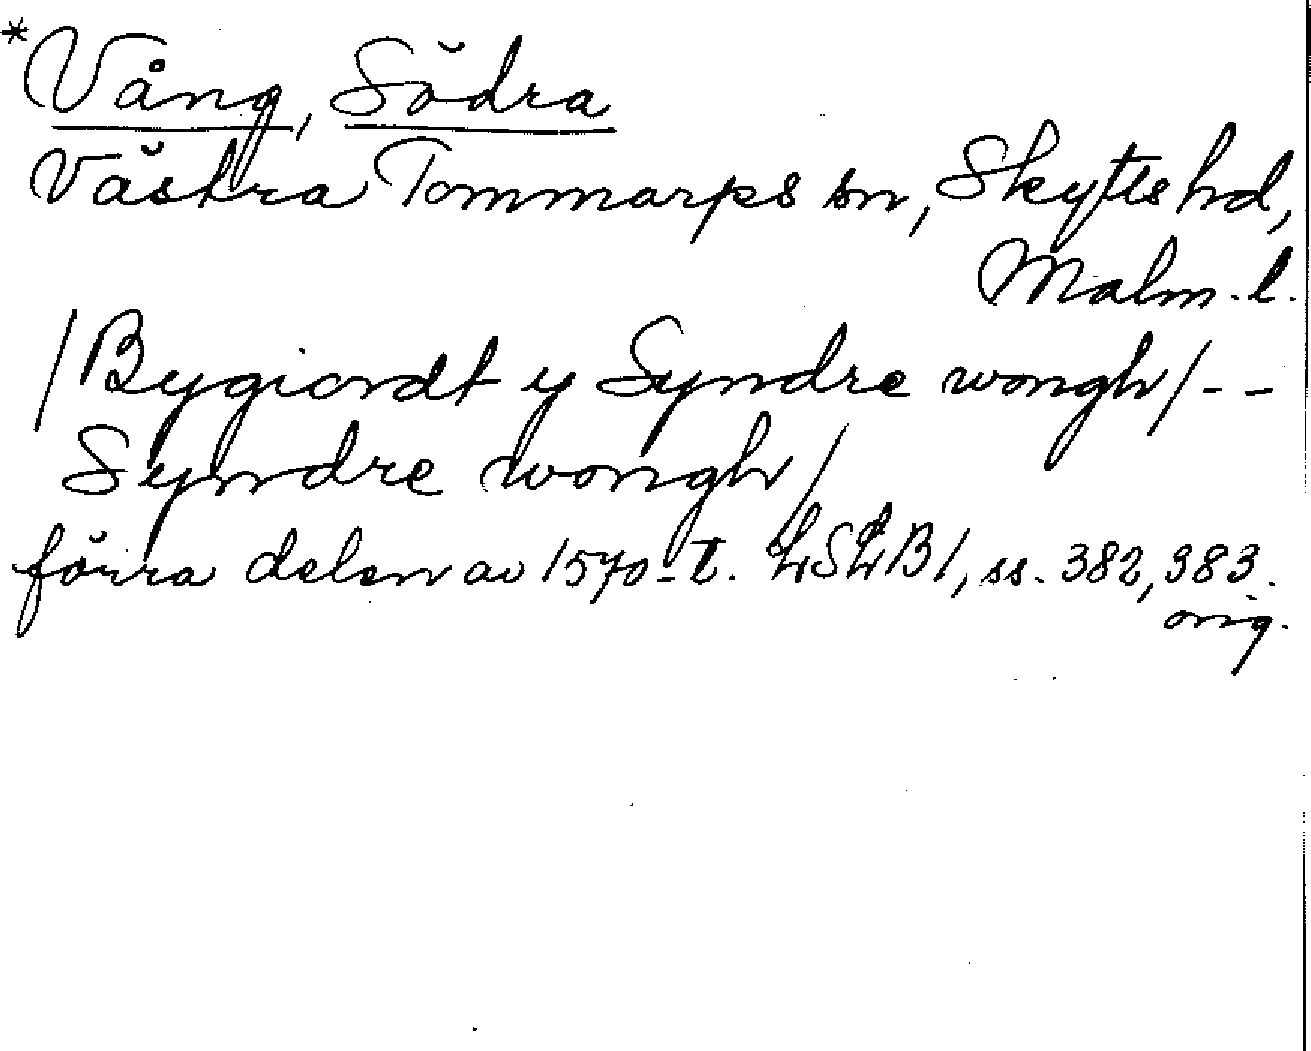 *Vång, Södra
Västra Tommarps sn, Skytts hd,
Malm. l.
/Bygiordt y Syndre wongh/ - -
Syndre wongh/
förra delen av 1570-t. LSLB1, ss. 382, 383.
orig.